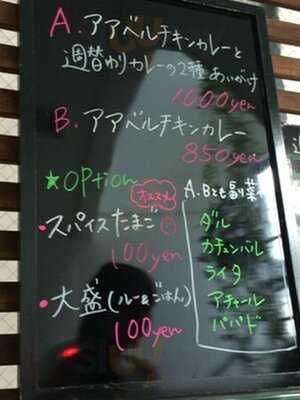 A. アアベルチキンカレーと
週替わりカレーの2種 あいがけ
1000yen
B. アアベルチキンカレー
850yen
★option
オススメ
・スパイスたまご
100yen
・大盛(ルー&ごはん)
100yen
A.Bとも副菜
ダル
カチュンバル
ライタ
アチャール
パパド